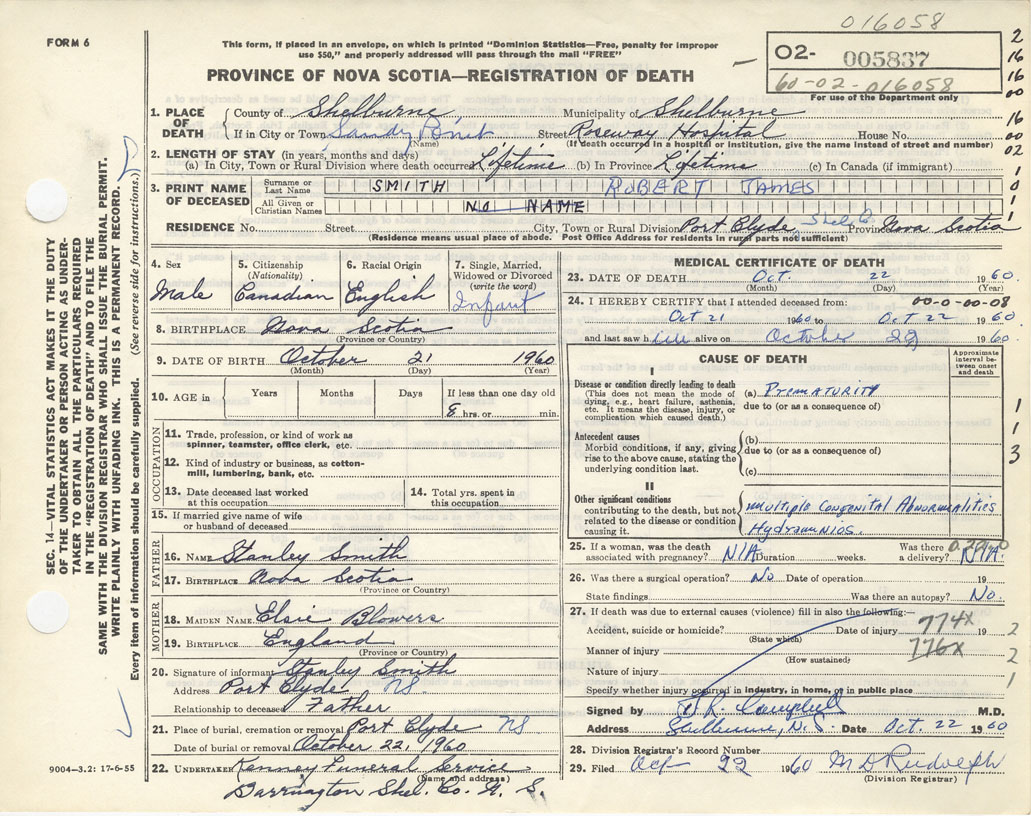 016058
FORM 6
This form, if placed in an envelope, on which is printed "Dominion Statistics—Free, penalty for improper
use $50," and properly addressed will pass through the mail "FREE"
PROVINCE OF NOVA SCOTIA—REGISTRATION OF DEATH
02- 005837
60-02-016058
For use of the Department only
2
16
16
00
16
00
02
1
0
1
1
1. PLACE OF DEATH
County of Shelburne Municipality of Shelburne
If in City or Town Sandy Point Street Roseway Hospital House No.
(Name) (If death occurred in a hospital or institution, give the name instead of street and number)
2. LENGTH OF STAY (in years, months and days)
(a) In City, Town or Rural Division where death occurred Lifetime (b) In Province Lifetime (c) In Canada (if immigrant)
3. PRINT NAME OF DECEASED
Surname or Last Name SMITH ROBERT JAMES
All Given or Christian Names NO NAME
RESIDENCE No. Street City, Town or Rural Division Port Clyde Shel Co Province Nova Scotia
(Residence means usual place of abode. Post Office Address for residents in rural parts not sufficient)
4. Sex
Male
5. Citizenship
(Nationality)
Canadian
6. Racial Origin
English
7. Single, Married,
Widowed or Divorced
(write the word)
Infant
8. BIRTHPLACE Nova Scotia
(Province or Country)
9. DATE OF BIRTH October 21 1960
(Month) (Day) (Year)
10. AGE in Years Months Days If less than one day
8 hrs. or min.
OCCUPATION
11. Trade, profession, or kind of work as
spinner, teamster, office clerk, etc.
12. Kind of industry or business, as cotton-
mill, lumbering, bank, etc.
13. Date deceased last worked
at this occupation
14. Total yrs. spent in
this occupation
15. If married give name of wife
or husband of deceased
FATHER
16. NAME Stanley Smith
17. BIRTHPLACE Nova Scotia
(Province or Country)
MOTHER
18. MAIDEN NAME Elsie Blowers
19. BIRTHPLACE England
(Province or Country)
20. Signature of informant Stanley Smith
Address Port Clyde NS.
Relationship to deceased Father
21. Place of burial, cremation or removal Port Clyde NS
Date of burial or removal October 22, 1960
22. UNDERTAKER Kenney Funeral Service
(Name and address)
Barrington Shel. Co. N. S.
MEDICAL CERTIFICATE OF DEATH
23. DATE OF DEATH Oct. 22 1960.
(Month) (Day) (Year)
24. I HEREBY CERTIFY that I attended deceased from: 00-0-00-08
Oct 21 1960 to Oct 22 1960
and last saw him alive on October 22 1960
CAUSE OF DEATH
Approximate
interval be-
tween onset
and death
I
Disease or condition directly leading to death
(This does not mean the mode of
dying, e.g., heart failure, asthenia,
etc. It means the disease, injury, or
complication which caused death.)
(a) Prematurity
due to (or as a consequence of)
Antecedent causes
Morbid conditions, if any, giving
rise to the above cause, stating the
underlying condition last.
(b)
due to (or as a consequence of)
(c)
1
1
3
II
Other significant conditions
contributing to the death, but not
related to the disease or condition
causing it.
Multiple Congenital Abnormalities
Hydramnios.
25. If a woman, was the death
associated with pregnancy? N/A Duration weeks. Was there
a delivery? N/A.
26. Was there a surgical operation? No Date of operation 19
State findings Was there an autopsy? No.
27. If death was due to external causes (violence) fill in also the following:—
Accident, suicide or homicide? Date of injury 19
(State which)
774X
776X
Manner of injury
(How sustained)
Nature of injury
2
2
1
Specify whether injury occurred in industry, in home, or in public place
Signed by Campbell M.D.
Address Shelburne, N.S. Date Oct. 22 1960
28. Division Registrar's Record Number
29. Filed Oct 22 1960 M D Rudolph
(Division Registrar)
SEC. 14—VITAL STATISTICS ACT MAKES IT THE DUTY
OF THE UNDERTAKER OR PERSON ACTING AS UNDER-
TAKER TO OBTAIN ALL THE PARTICULARS REQUIRED
IN THE "REGISTRATION OF DEATH" AND TO FILE THE
SAME WITH THE DIVISION REGISTRAR WHO SHALL ISSUE THE BURIAL PERMIT.
WRITE PLAINLY WITH UNFADING INK. THIS IS A PERMANENT RECORD.
Every item of information should be carefully supplied. (See reverse side for instructions.)
9004-3.2: 17-6-55